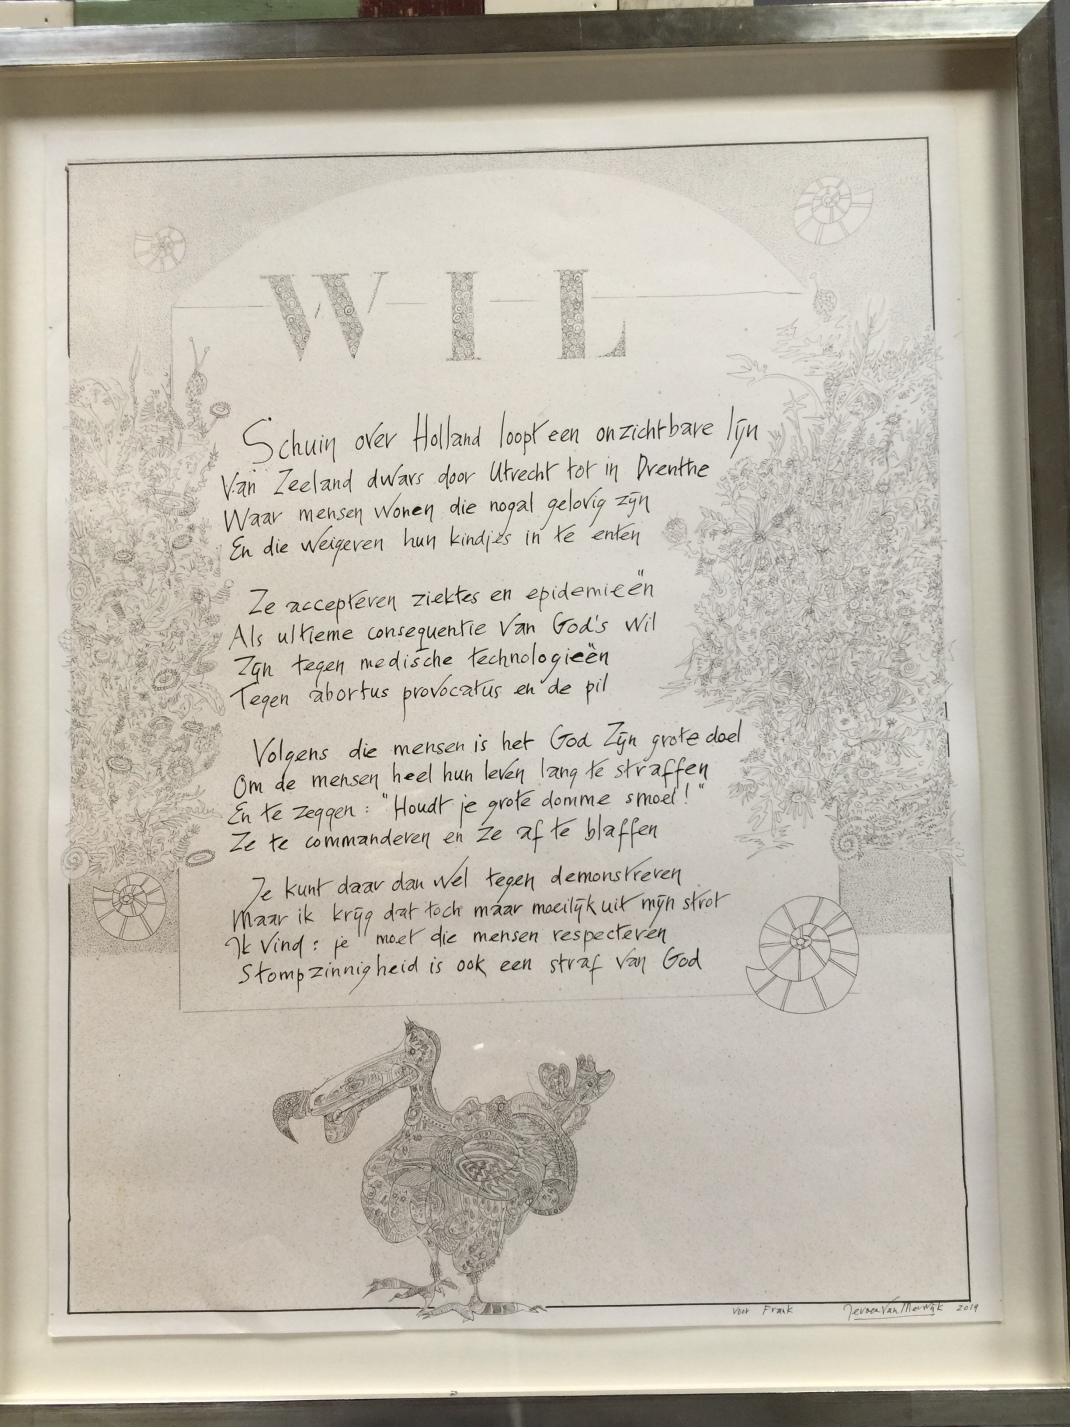 WIL
Schuin over Holland loopt een onzichtbare lijn
Van Zeeland dwars door Utrecht tot in Drenthe
Waar mensen wonen die nogal gelovig zijn
En die weigeren hun kindjes in te enten
Ze accepteren ziektes en epidemieën
Als ultieme consequentie van God's wil
Zijn tegen medische technologieën
Tegen abortus provocatus en de pil
Volgens die mensen is het God Zijn grote doel
Om de mensen heel hun leven lang te straffen
En te zeggen: "Houdt je grote domme smoel!"
Ze te commanderen en ze af te blaffen
Je kunt daar dan wel tegen demonstreren
Maar ik krijg dat toch maar moeilijk uit mijn strot
Ik vind: je moet die mensen respecteren
Stompzinnigheid is ook een straf van God
voor Frank Jeroen van Merwijk 2019